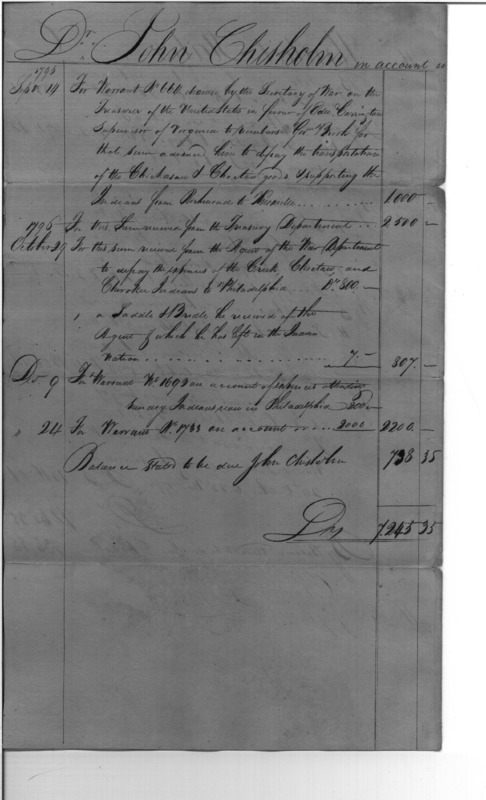 Dr. John Chisholm in account
1795
For Warrant No 666 drawn by the Secretary of War on the
Treasurer of the United States in favour of Edw. Carrington
Supervisor of Virginia to reimburse for
that sum advanced him to defray the transportation
of the Chickasaw & Choctaw goods & supporting the
Indians from Richmond to 1000 —
1795 To this Sum received from the Treasury Department 2500 —
October 29 For this sum received from the Agent of the War Department
to defray the expenses of the Creek, Choctaw, and
Cherokee Indians to Philadelphia Drs 800. —
" a Saddle & Bridle he received of the
Agent & which he has left in the Indian
Nation 7. — 807. —
9 For Warrant No 1693 on account of expences
sundry Indians in Philadelphia 200 —
" 24 For Warrant No 1733 on account 2000 2200. —
Balance stated to be due John Chisholm 738 35
Drs 7.245 35